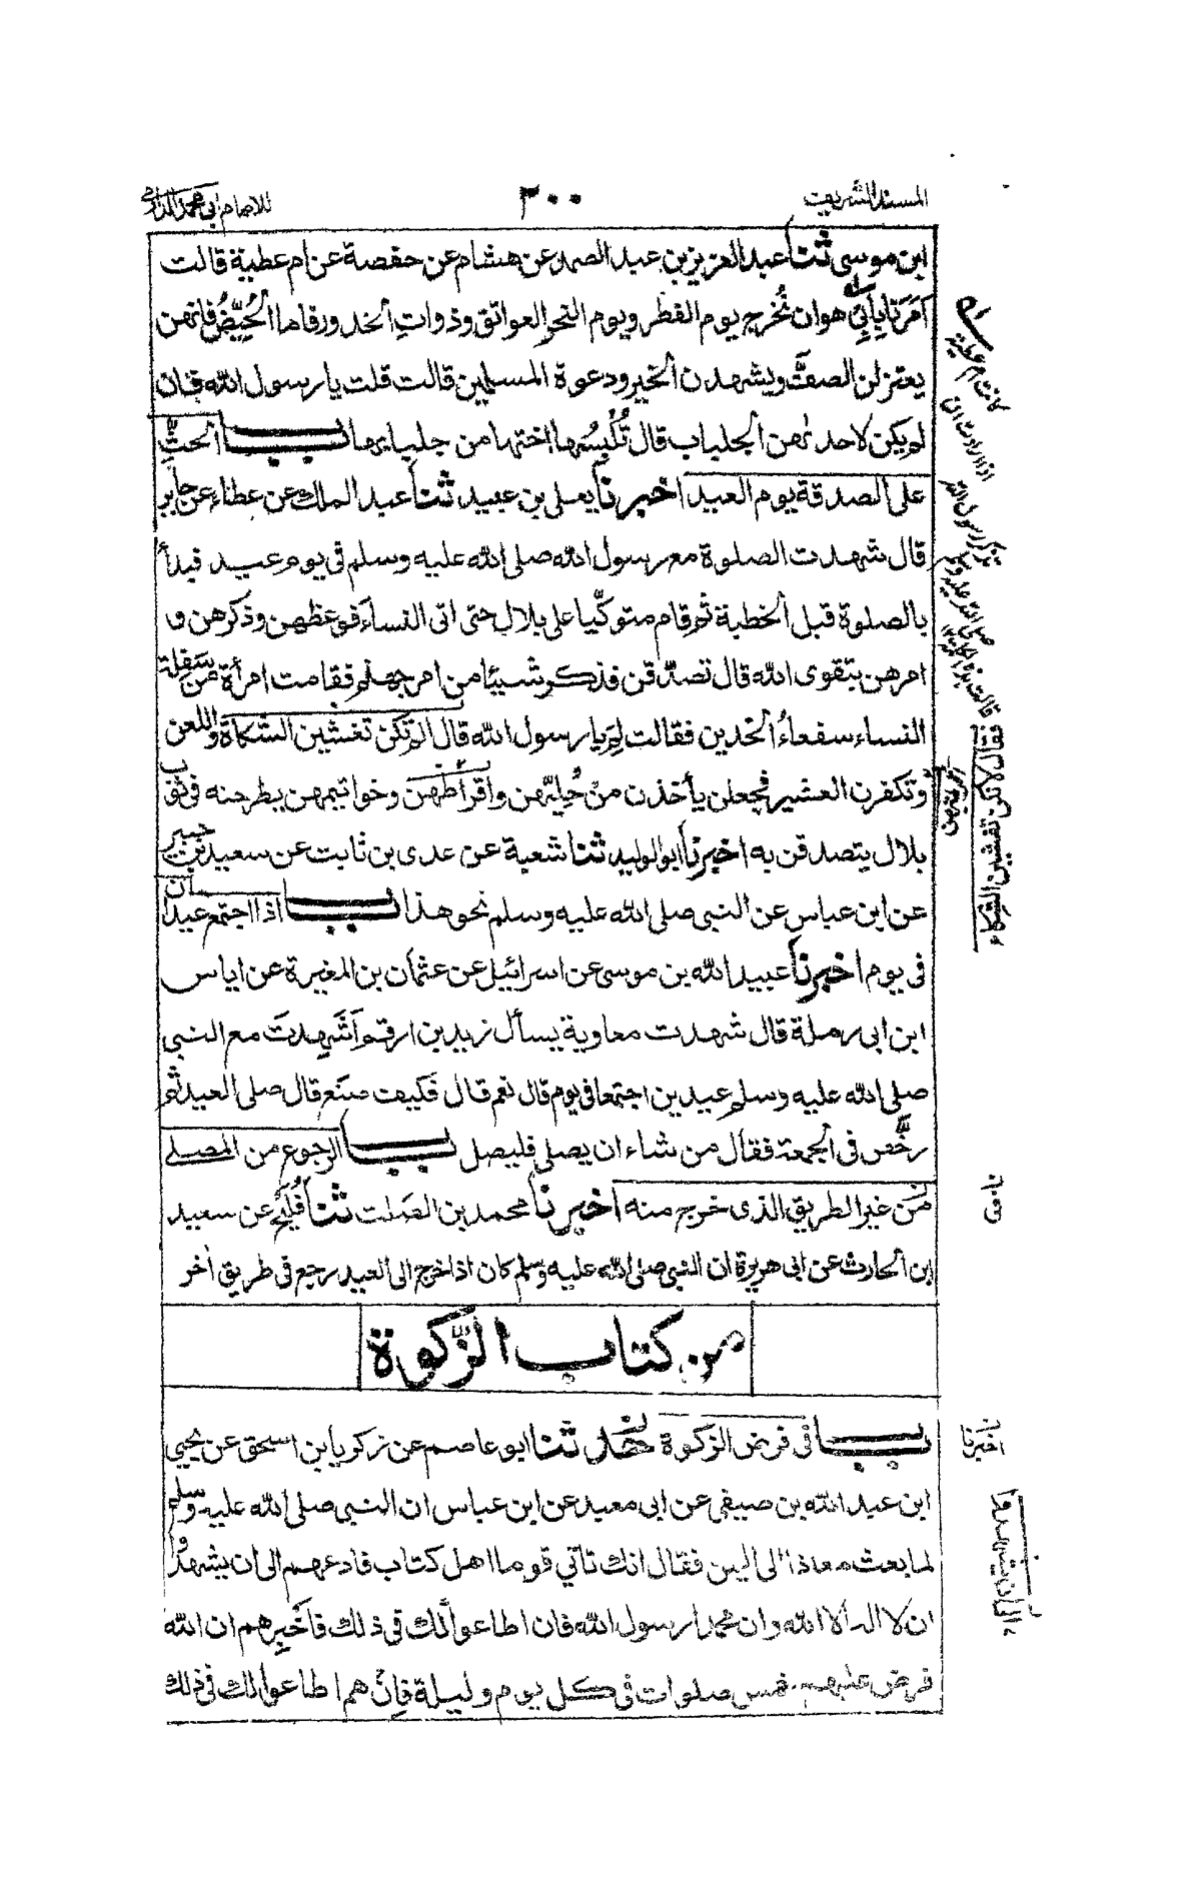 المسند الشريف ٣٠٠ للامام ابى محمد الدارمى
ابن موسى ثنا عبد العزيز بن عبد الصمد عن هشام عن حفصة عن ام عطية قالت
اَمَرَنا بابى هو ان نُخرج يوم الفطر ويوم النحر العواتق وذوات الخدور فاما الحُيَّضُ فانهن
يعتزلن الصفّ ويشهدن الخير ودعوة المسلمين قالت قلت يا رسول الله فان
لم يكن لاحدٰهن الجلباب قال تُلْبِسُها اختها من جلبابها باب الحثِّ
على الصدقة يوم العيد اخبرنا يعلى بن عبيد ثنا عبد الملك عن عطاء عن جابر
قال شهدت الصلوة مع رسول الله صلى الله عليه وسلم فى يوم عيد فبدأ
بالصلوة قبل الخطبة ثم قام متوكّيا على بلال حتى اتى النساء فوعظهن وذكرهن و
امرهن بتقوى الله قال تصدّقن فذكر شيئا من امر جهنم فقامت امرأة من سَفِلة
النساء سفعاءُ الخدين فقالت لِمَ يا رسول الله قال انكن تفشين الشكاة واللعن
وتكفرن العشير فجعلن يأخذن من حُلِيّهن واقراطهن وخواتيمهن يطرحنه فى ثوب
بلال يتصدقن به اخبرنا ابو الوليد ثنا شعبة عن عدى بن ثابت عن سعيد بن جبير
عن ابن عباس عن النبى صلى الله عليه وسلم نحو هذا باب اذا اجتمع عيدان
فى يوم اخبرنا عبيد الله بن موسى عن اسرائيل عن عثمان بن المغيرة عن اياس
ابن ابى رملة قال شهدت معاوية يسأل زيد بن ارقم اَشَهِدتَ مع النبى
صلى الله عليه وسلم عيدين اجتمعا فى يوم قال نعم قال فكيف صنع قال صلى العيد ثم
رخّص فى الجمعة فقال من شاء ان يصلى فليصل باب الرجوع من المصلى
من غير الطريق الذى خرج منه اخبرنا محمد بن الصلت ثنا فُلَيْح عن سعيد
ابن الحارث عن ابى هريرة ان النبى صلى الله عليه وسلم كان اذا خرج الى العيد رجع فى طريق اٰخر
من كتاب الزَّكوة
باب فى فرض الزكوة حدثنا ابو عاصم عن زكريا بن اسحق عن يحيى
ابن عبد الله بن صيفى عن ابى معبد عن ابن عباس ان النبى صلى الله عليه وسلم
لما بعث معاذا الى اليمن فقال انك تأتي قوما اهل كتاب فادعهم الى ان يشهدوا
ان لا اله الا الله وان محمدا رسول الله فان اطاعوا لك فى ذلك فاَخبِرهم ان الله
فرض عليهم خمس صلوات فى كل يوم وليلة فاِن هم اطاعوا لك فى ذلك
فقال لانكن تفشين الشكاء
اخبرنا
الى ان يشهدوا